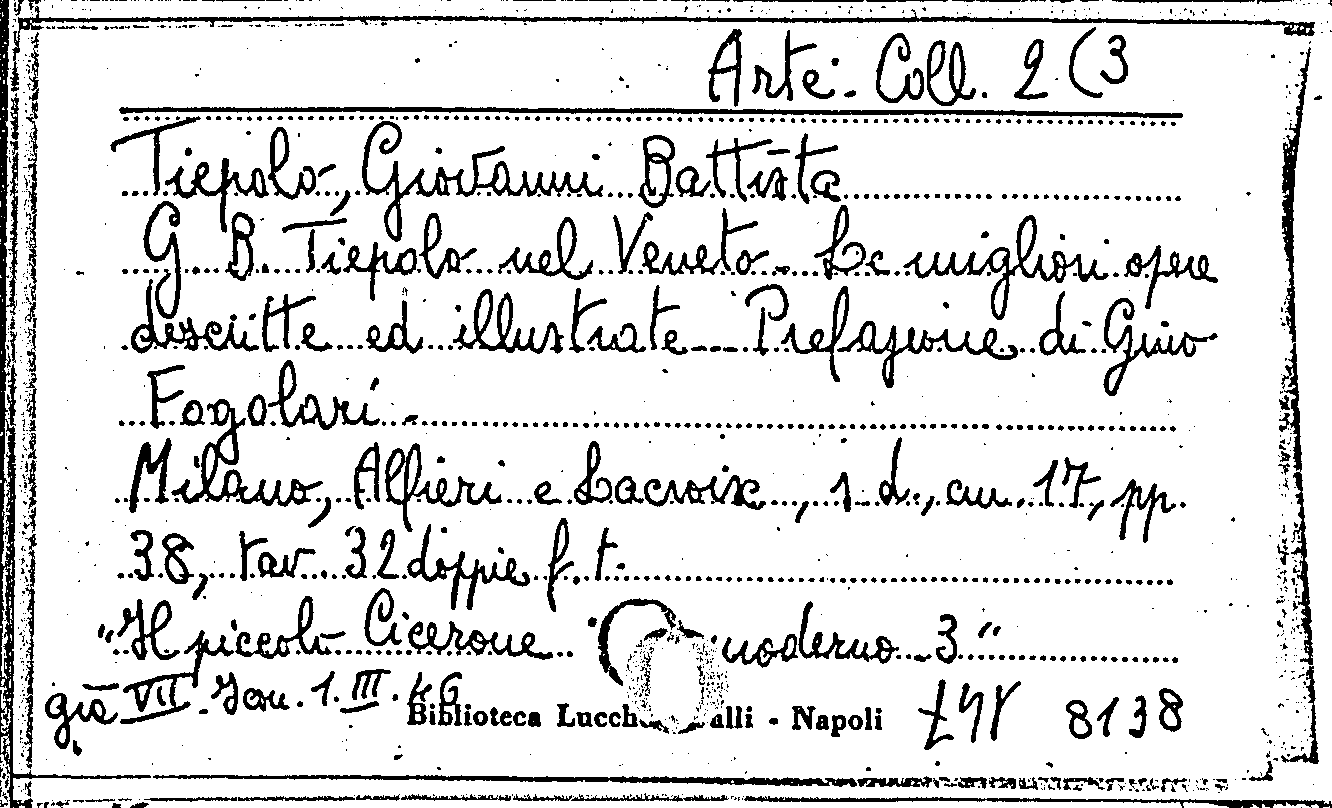 Arte. Coll. 2 (3
Tiepolo, Giovanni Battista
G. B. Tiepolo nel Veneto - Le migliori opere
descritte ed illustrate - Prefazione di Gino
Fogolari -
Milano, Alfieri e Lacroix, s. d., cm. 17, pp.
38, tav. 32 doppie f. t.
"Il piccolo Cicerone moderno 3"
già VII. Scan. 1. III. 46
Biblioteca Lucch alli - Napoli 8138